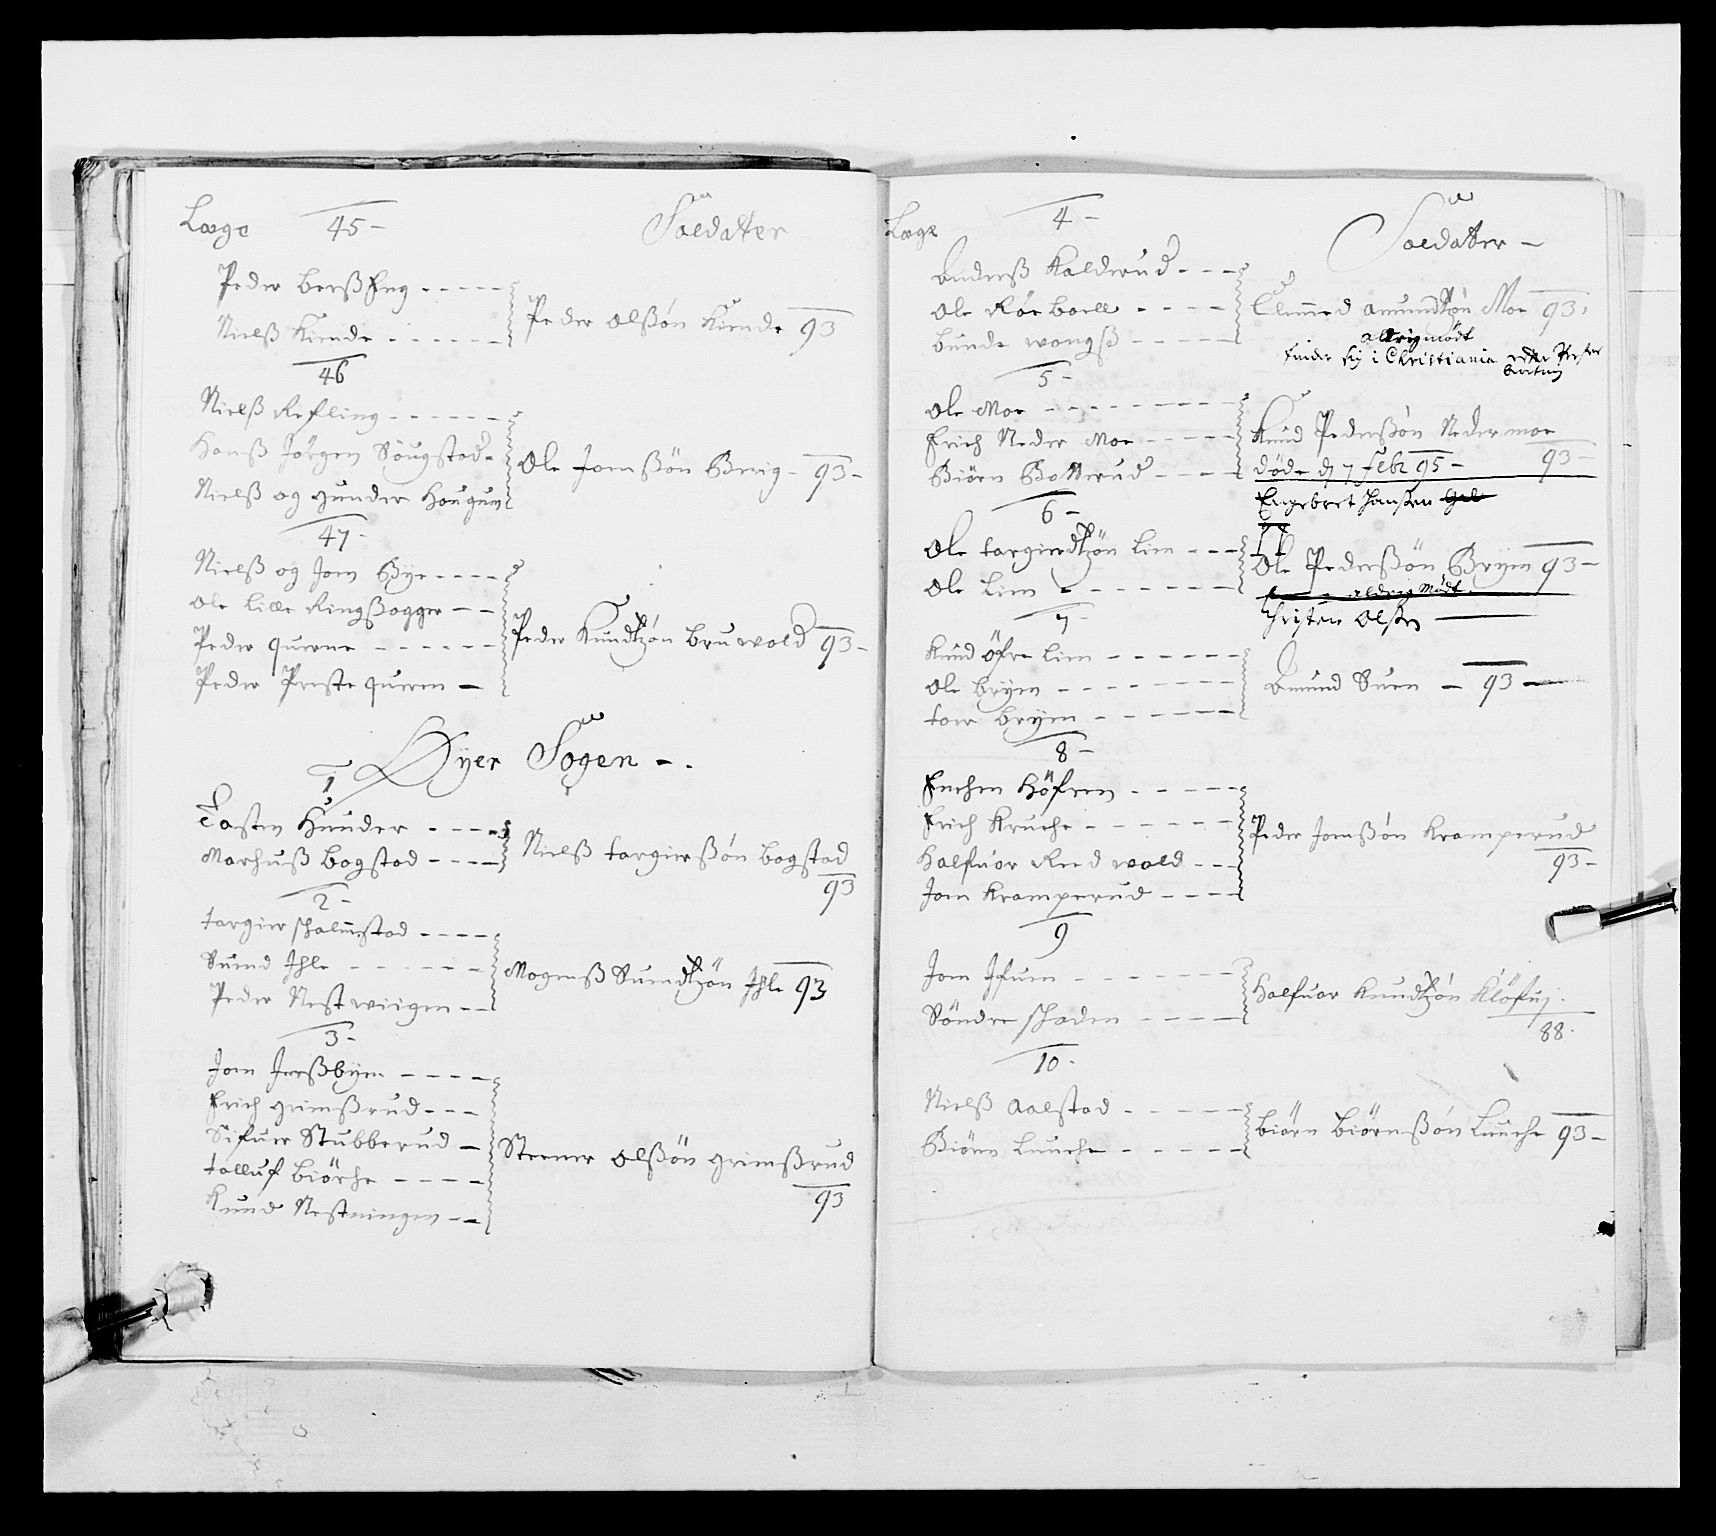 Læge 45 - Soldatter
Peder berß Eng - - - - -
Nielß Kinde - - - - - -
Peder olßøn Kinde 93
46
Nielß Refling - - - - - -
Hanß Jörgen Söugstad -
Nielß og gunder Hougum
Ole Jonßøn Berig - 93 -
47 -
Nielß og Jon Bye - - - -
Ole Lille Ringßogger - -
Peder querne - - - - - -
Peder Preste queren -
Peder Knudtzøn bruwold 93 -
Øyer Sogen - .
1
Tosten Hunder - - - -
Marhuß bogstad - - - -
Nielß torgierßøn bogstad
93
2 -
torgier schalmstad - - - -
Suend Ihle - - - - - -
Peder Nestwiigen - -
Mogenß Suendtzön Ihle 93
3 -
Jon Jerßbyen - - - -
Erich grimßrud - - -
Sifuer Stubberud -
tolluf biörche - - - -
Knud Nestningen - -
Steener olßön grimßrud
93
Læge 4 - Soldatter -
Anderß Kalderud - - -
Ole Röeboell - - - -
bunde wongß - - - - -
Clemmed amundtzön Moe 93 ,
aldrig mödt
finder sig i Christiania
5 -
Ole Moe - - - - - - - -
Erich Neder Moe - - - -
Biörn Botterud - - - -
Knud Pederßøn Nedermoe
döde d 7 febr 95 - 93 -
Engebret Hanßen
6 -
Ole torgierdtzön Lien - - -
Ole Lien - - - - - - -
Ole Pederßön Bryen 93 -
aldrig Mödt
Christen Olßen
7 -
Knud öfre Lien - - - - - -
Ole bryen - - - - - - -
tore bryen - - - - - -
Amund Suen - 93 -
8 -
Enchen Höfren - - - - -
Erich Kruche - - - - - -
Halfuor Reedwold - - -
Jon Kramperud - - - -
Peder Jonßön Kramperud
93 -
9
Jon Ifuen - - - - - - -
Söndre schaden - - - -
Halfuor Knudtzön Klöfuj.
88 .
10 -
Nielß Aalstad - - - - -
Biörn Luuche - - - - - -
biörn biörnßön Luuche 93 -